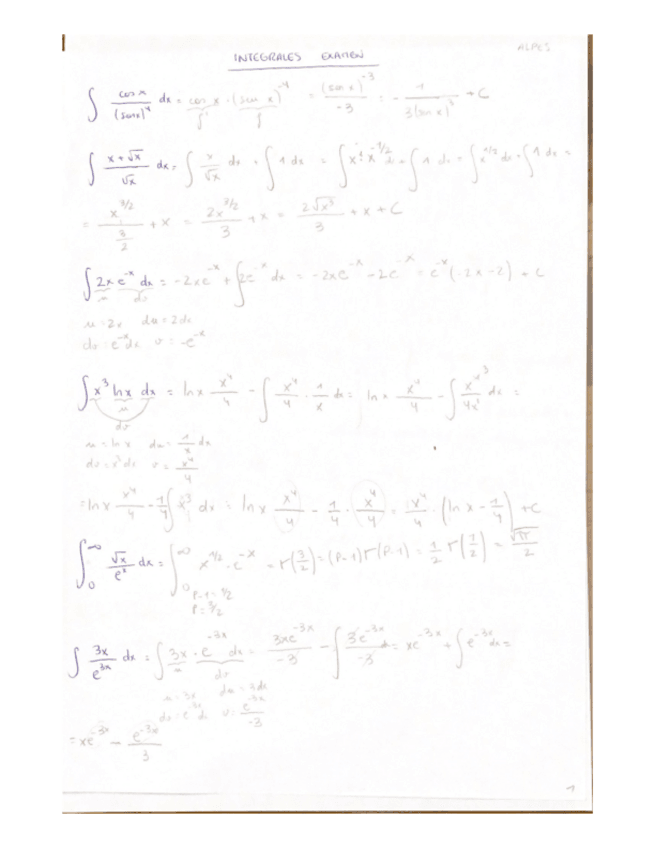 INTEGRALES EXAMEN
ALPES
∫ cos x / (sen x)^4 dx = cos x · (sen x)^-4 = (sen x)^-3 / -3 = - 1 / 3(sen x)^3 + C
f' f
∫ x + √x / √x dx = ∫ x / √x dx + ∫ 1 dx = ∫ x^1 · x^-1/2 dx + ∫ 1 dx = ∫ x^1/2 dx + ∫ 1 dx =
= x^3/2 / 3/2 + x = 2x^3/2 / 3 + x = 2√x^3 / 3 + x + C
∫ 2x e^-x dx = -2xe^-x + ∫ 2e^-x dx = -2xe^-x - 2e^-x = e^-x (-2x-2) + C
u dv
u = 2x du = 2dx
dv = e^-x dx v = -e^-x
∫ x^3 ln x dx = ln x x^4/4 - ∫ x^4/4 · 1/x dx = ln x x^4/4 - ∫ x^4 3 / 4x dx =
u
dv
u = ln x du = 1/x dx
dv = x^3 dx v = x^4/4
= ln x x^4/4 - 1/4 ∫ x^3 dx = ln x x^4/4 - 1/4 · x^4/4 = x^4/4 · (ln x - 1/4) + C
∫_0^∞ √x / e^x dx = ∫_0^∞ x^1/2 · e^-x = Γ(3/2) = (P-1) Γ(P-1) = 1/2 Γ(1/2) = √π / 2
P-1 = 1/2
P = 3/2
∫ 3x / e^3x dx = ∫ 3x · e^-3x dx = 3xe^-3x / -3 - ∫ 3e^-3x / -3 dx = xe^-3x + ∫ e^-3x dx =
u dv
u = 3x du = 3dx
dv = e^-3x dx v = e^-3x / -3
= xe^-3x - e^-3x / 3
1